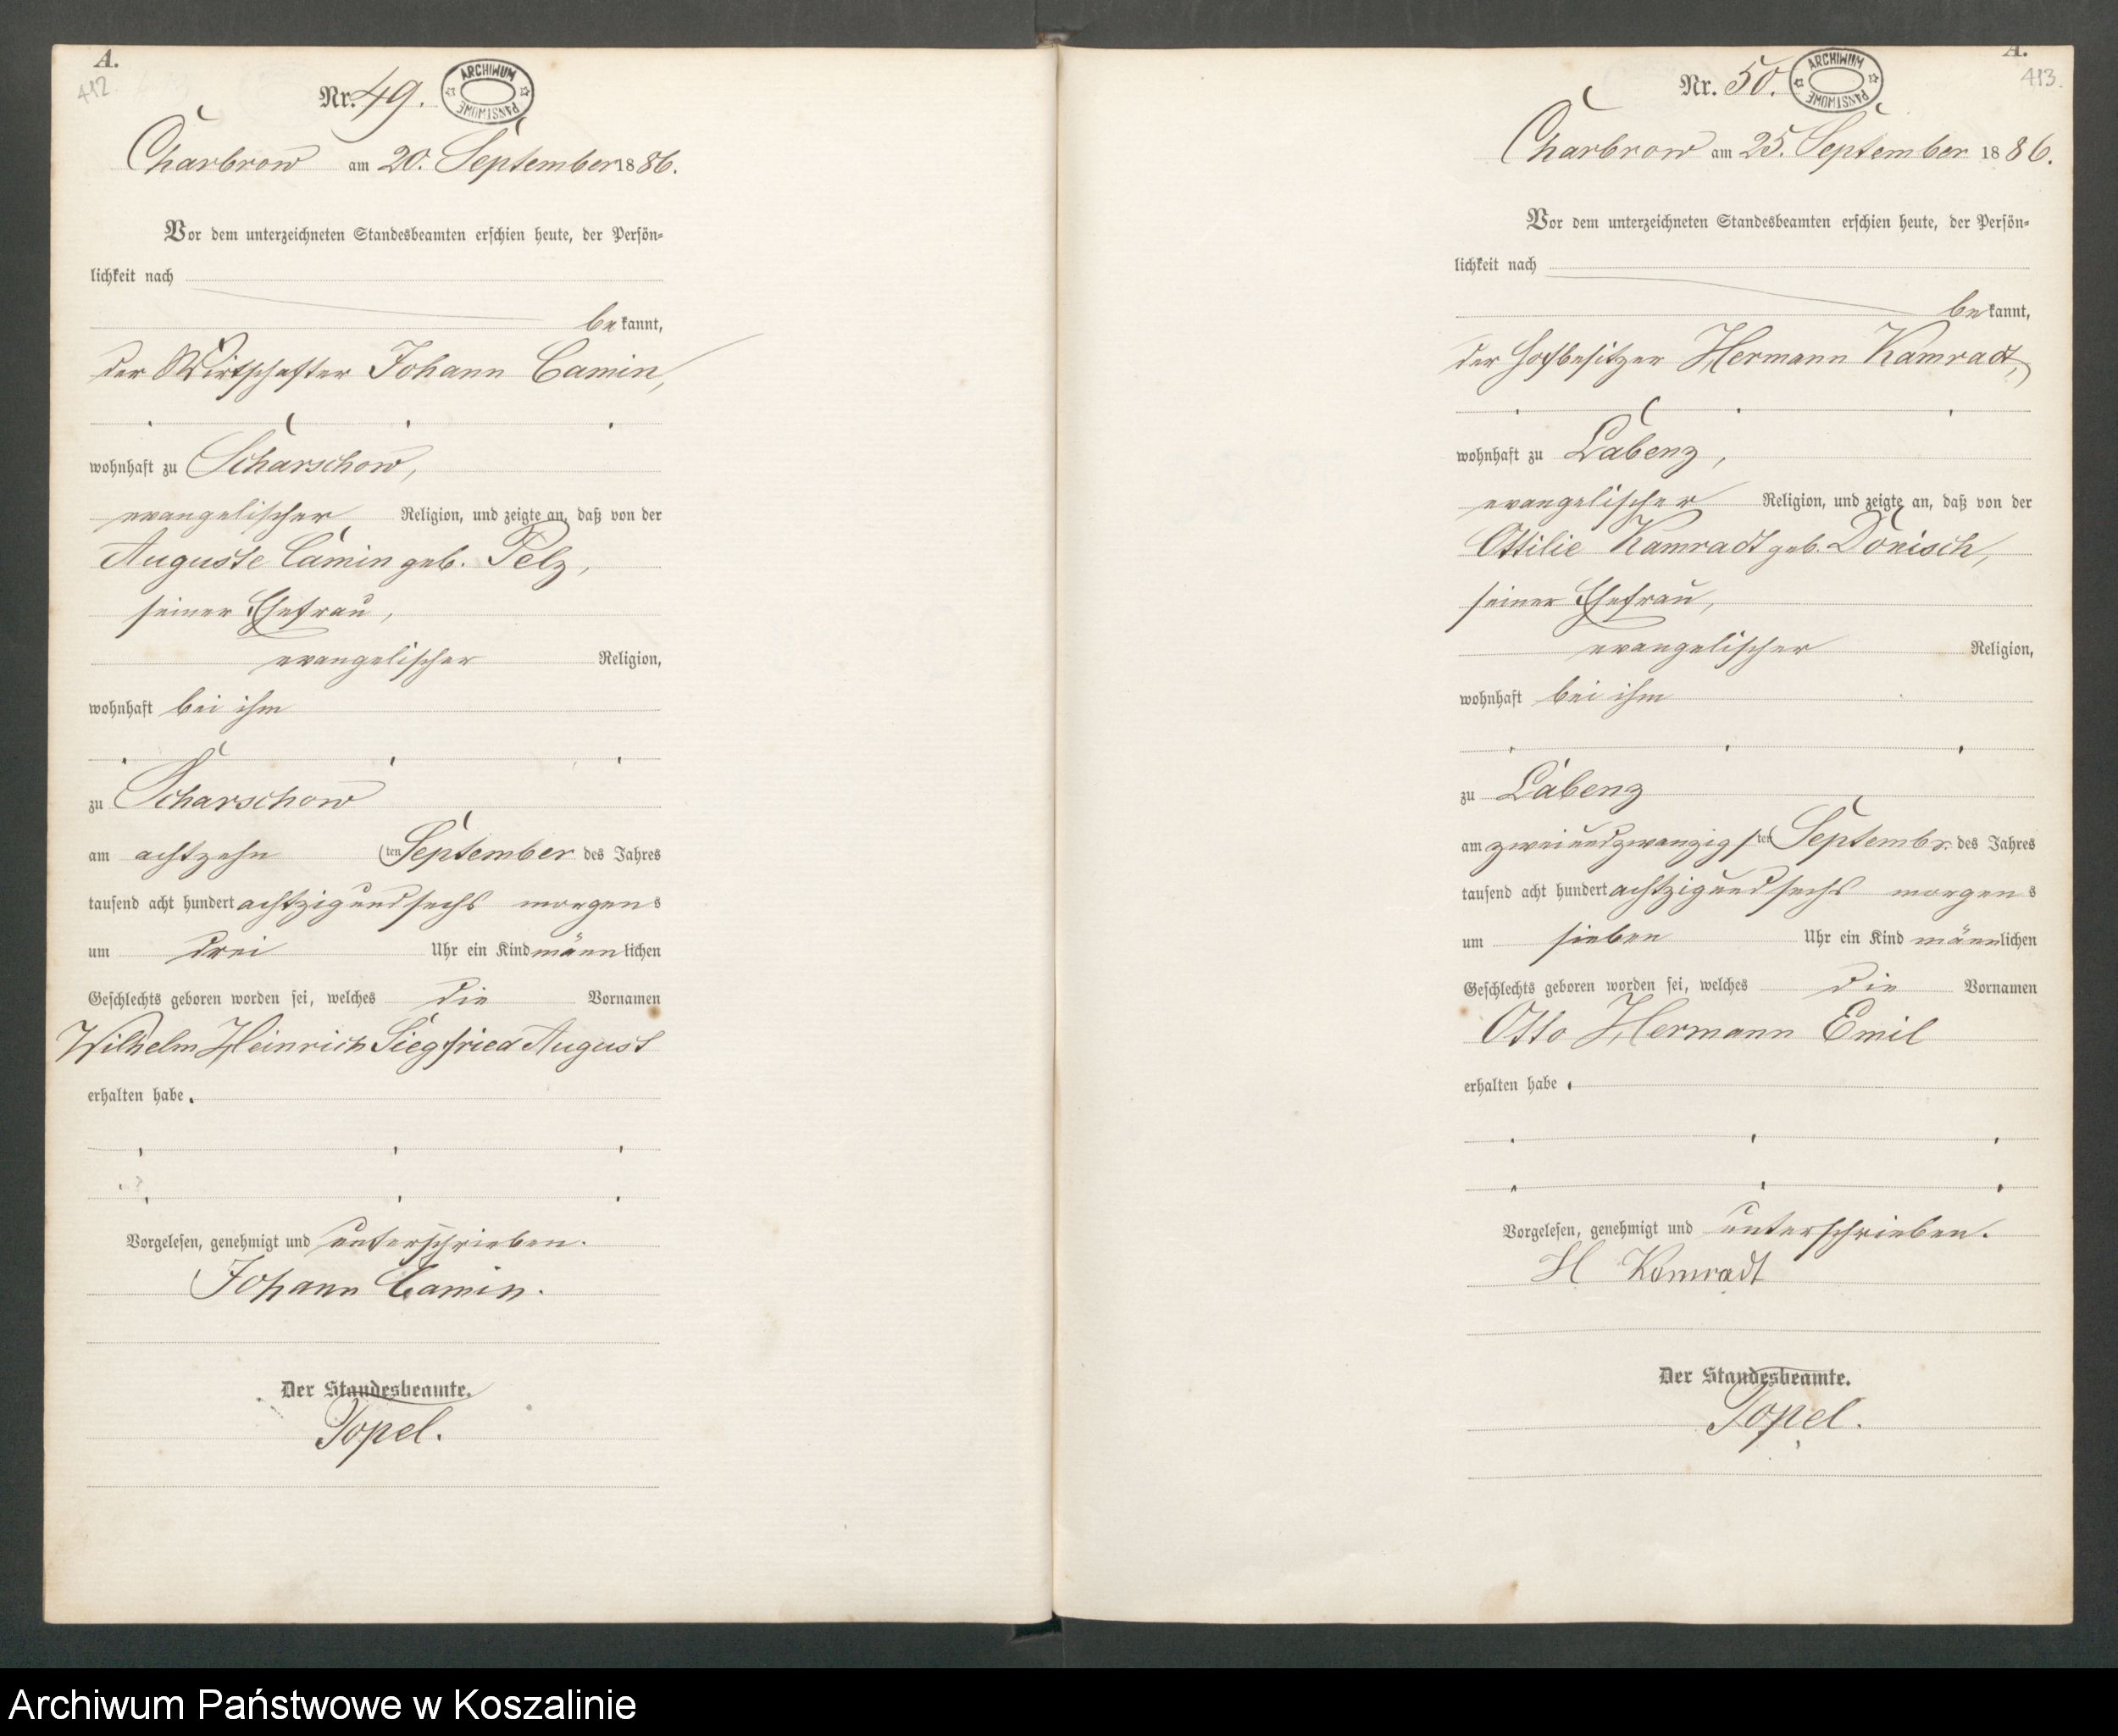 A.
412
Nr. 49.
ARCHIWUM PAŃSTWOWE
Charbrow am 20. September 1886.
Vor dem unterzeichneten Standesbeamten erschien heute, der Persön-
lichkeit nach
bekannt,
der Wirtschafter Johann Camin,
wohnhaft zu Scharschow,
evangelischer Religion, und zeigte an, daß von der
Auguste Camin geb. Pelz,
seiner Ehefrau,
evangelischer Religion,
wohnhaft bei ihm
zu Scharschow
am achtzehnten September des Jahres
tausend acht hundert achtzig und sechs morgens
um drei Uhr ein Kind männlichen
Geschlechts geboren worden sei, welches die Vornamen
Wilhelm Heinrich Siegfried August
erhalten habe.
Vorgelesen, genehmigt und unterschrieben.
Johann Camin.
Der Standesbeamte.
Topel.
A.
413.
Nr. 50.
ARCHIWUM PAŃSTWOWE
Charbrow am 25. September 1886.
Vor dem unterzeichneten Standesbeamten erschien heute, der Persön-
lichkeit nach
bekannt,
der Hofbesitzer Hermann Kamradt,
wohnhaft zu Labenz,
evangelischer Religion, und zeigte an, daß von der
Ottilie Kamradt geb. Donisch,
seiner Ehefrau,
evangelischer Religion,
wohnhaft bei ihm
zu Labenz
am zweiundzwanzigsten Septembr. des Jahres
tausend acht hundert achtzig und sechs morgens
um sieben Uhr ein Kind männlichen
Geschlechts geboren worden sei, welches die Vornamen
Otto Hermann Emil
erhalten habe.
Vorgelesen, genehmigt und unterschrieben.
H Kamradt
Der Standesbeamte.
Topel.
Archiwum Państwowe w Koszalinie